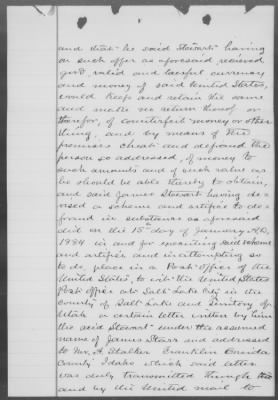 and that he said Stewart having
on such offer as aforesaid received
good, valid and lawful currency
and money of said United States,
would keep and retain the same
and make no return thereof or
therefor, of counterfeit money or other
thing, and by means of the
premises cheat and defraud the
person so addressed, of money to
such amounts and of such value as
he should be able thereby to obtain,
and said James Stewart having de-
vised a scheme and artifice to de-
fraud in substance as aforesaid
did on the 15th day of January A.D.
1884 in and for executing said scheme
and artifice and in attempting so
to do, place in a Post-office of the
United States, to wit: the United States
Post office at Salt Lake City in the
County of Salt Lake and Territory of
Utah a certain letter written by him
the said Stewart under the assumed
name of James Starr and addressed
to Mr. A. Stalker Franklin Oneida
County Idaho which said letter
was duly transmitted through the
and by the United mail to